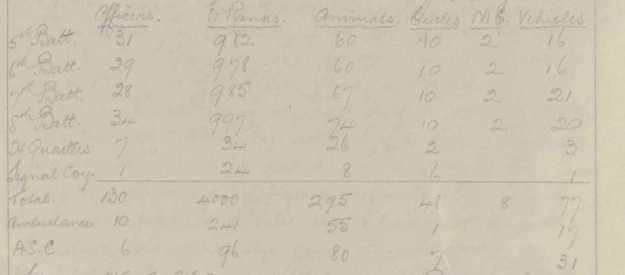 Officers. O Ranks. Animals. Cycles M.C. Vehicles
5th Batt. 31 982 60 10 2 16
6th Batt. 29 978 60 10 2 16
7th Batt. 28 985 67 10 2 21
8th Batt. 34 997 74 10 2 20
H Quarters 7 34 26 2 3
Signal Coy. 1 24 8 6 1
Total. 130 4000 295 48 8 77
Ambulance 10 241 55 1 17
A.S.C 6 96 80 7 31